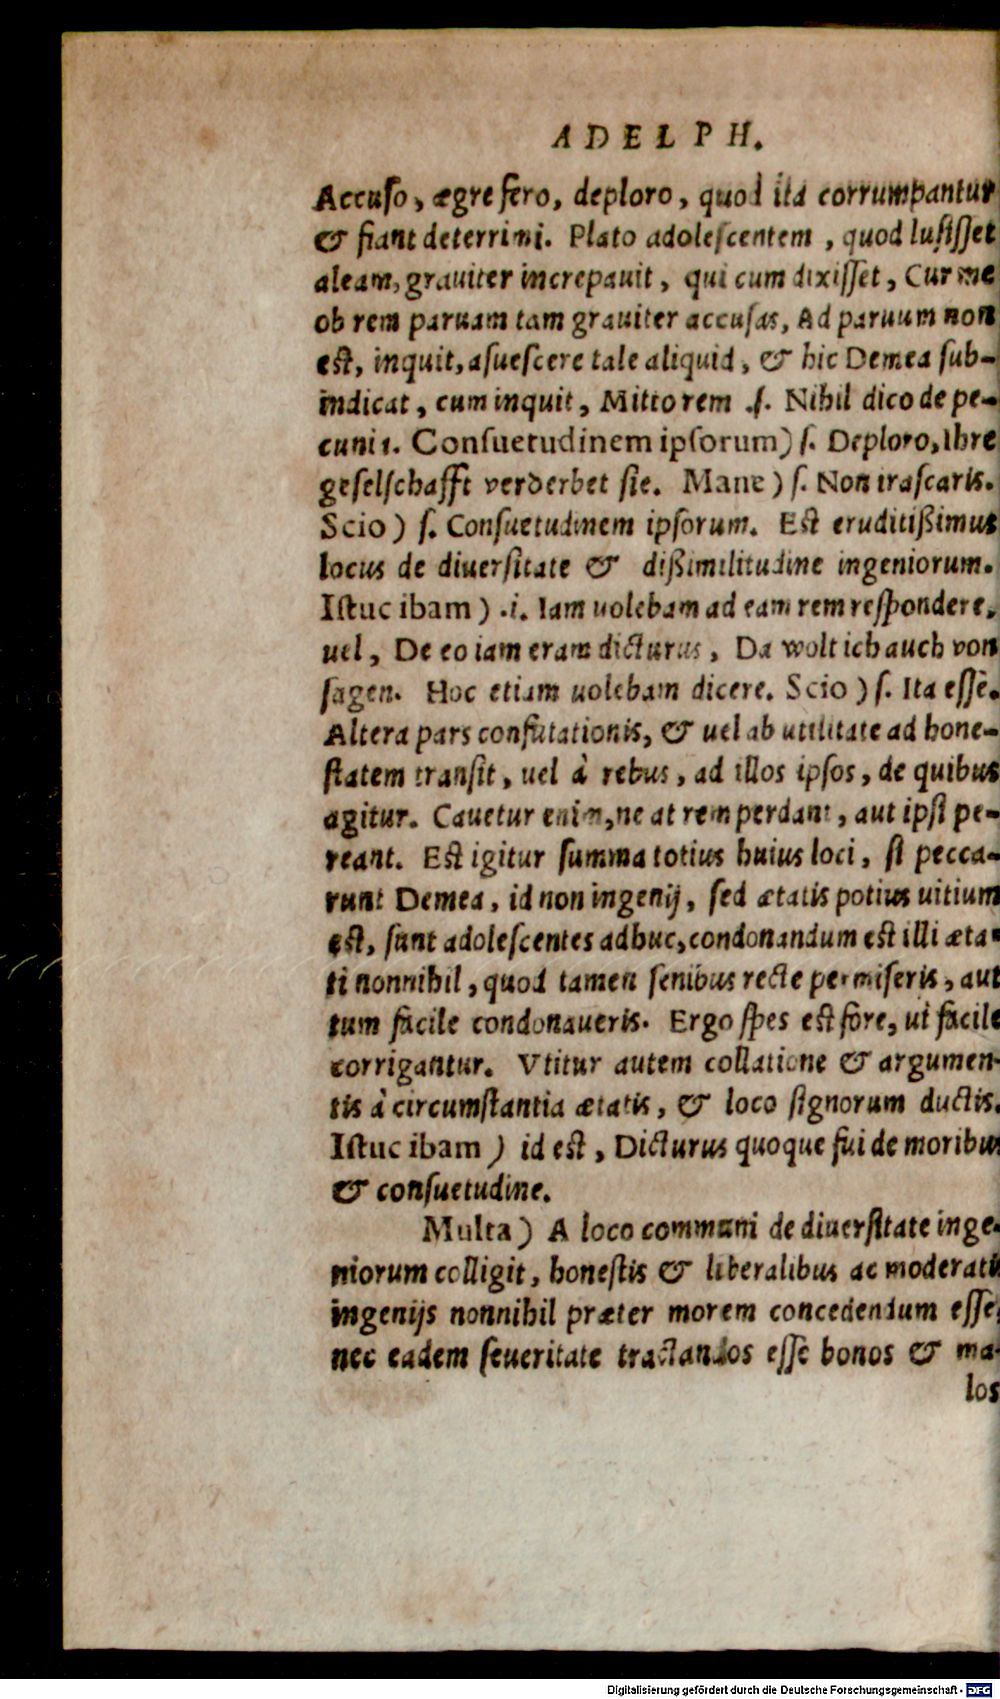 ADELPH.
Accuſo, ægre fero, deploro, quod ita corrumpantur
& fiant deterrimi. Plato adoleſcentem, quod luſiſſet
aleam, grauiter increpauit, qui cum dixiſſet, Cur me
ob rem paruam tam grauiter accuſas, Ad paruum non
eſt, inquit, aſueſcere tale aliquid, & hic Demea ſub-
indicat, cum inquit, Mitto rem .ſ. Nihil dico de pe-
cunia. Conſuetudinem ipſorum) ſ. Deploro, Ihre
geſelſchafft verderbet ſie. Mane) ſ. Non iraſcaris.
Scio) ſ. Conſuetudinem ipſorum. Eſt eruditißimus
locus de diuerſitate & dißimilitudine ingeniorum.
Iſtuc ibam) .i. Iam uolebam ad eam rem reſpondere,
uel, De eo iam eram dicturus, Da wolt ich auch von
ſagen. Hoc etiam uolebam dicere. Scio) ſ. Ita eſſe.
Altera pars confutationis, & uel ab utilitate ad hone-
ſtatem tranſit, uel à rebus, ad illos ipſos, de quibus
agitur. Cauetur enim, ne at rem perdant, aut ipſi pe-
reant. Eſt igitur ſumma totius huius loci, ſi pecca-
runt Demea, id non ingenij, ſed ætatis potius uitium
eſt, ſunt adoleſcentes adhuc, condonandum eſt illi æta-
ti nonnihil, quod tamen ſenibus recte permiſeris, aut
tum facile condonaueris. Ergo ſpes eſt fore, ut facile
corrigantur. Vtitur autem collatione & argumen-
tis à circumſtantia ætatis, & loco ſignorum ductis.
Iſtuc ibam) id eſt, Dicturus quoque fui de moribus
& conſuetudine.
Multa) A loco communi de diuerſitate inge-
niorum colligit, honeſtis & liberalibus ac moderatis
ingenijs nonnihil præter morem concedendum eſſe,
nec eadem ſeueritate tractandos eſſe bonos & ma-
los
Digitalisierung gefördert durch die Deutsche Forschungsgemeinschaft - DFG